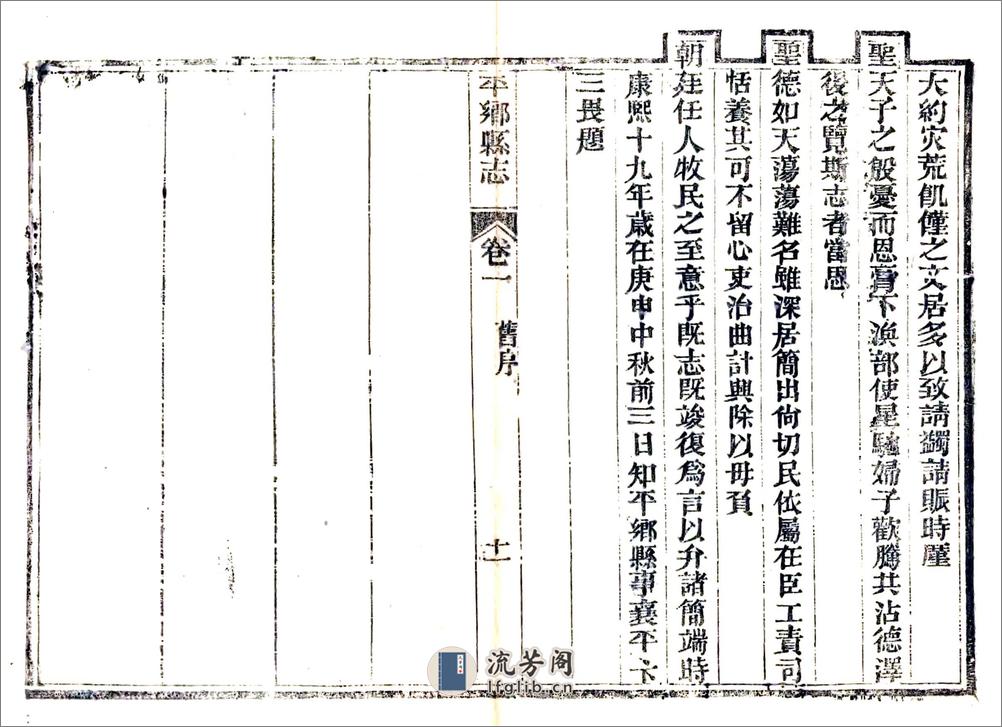 大約灾荒飢僅之文居多以致請蠲請賑時廑
聖天子之殷憂而恩膏下渙部使星馳婦子歡騰共沾德澤
後之覽斯志者當思
聖德如天蕩蕩難名雖深居簡出尙切民依屬在臣工責司
恬養其可不留心吏治曲計興除以毋負
朝廷任人牧民之至意乎旣志旣竣復爲言以弁諸簡端時
康熙十九年歲在庚申中秋前三日知平鄉縣事襄平卞
三畏題
平鄉縣志
卷一
舊序
十一
流芳阁
lfglib.cn